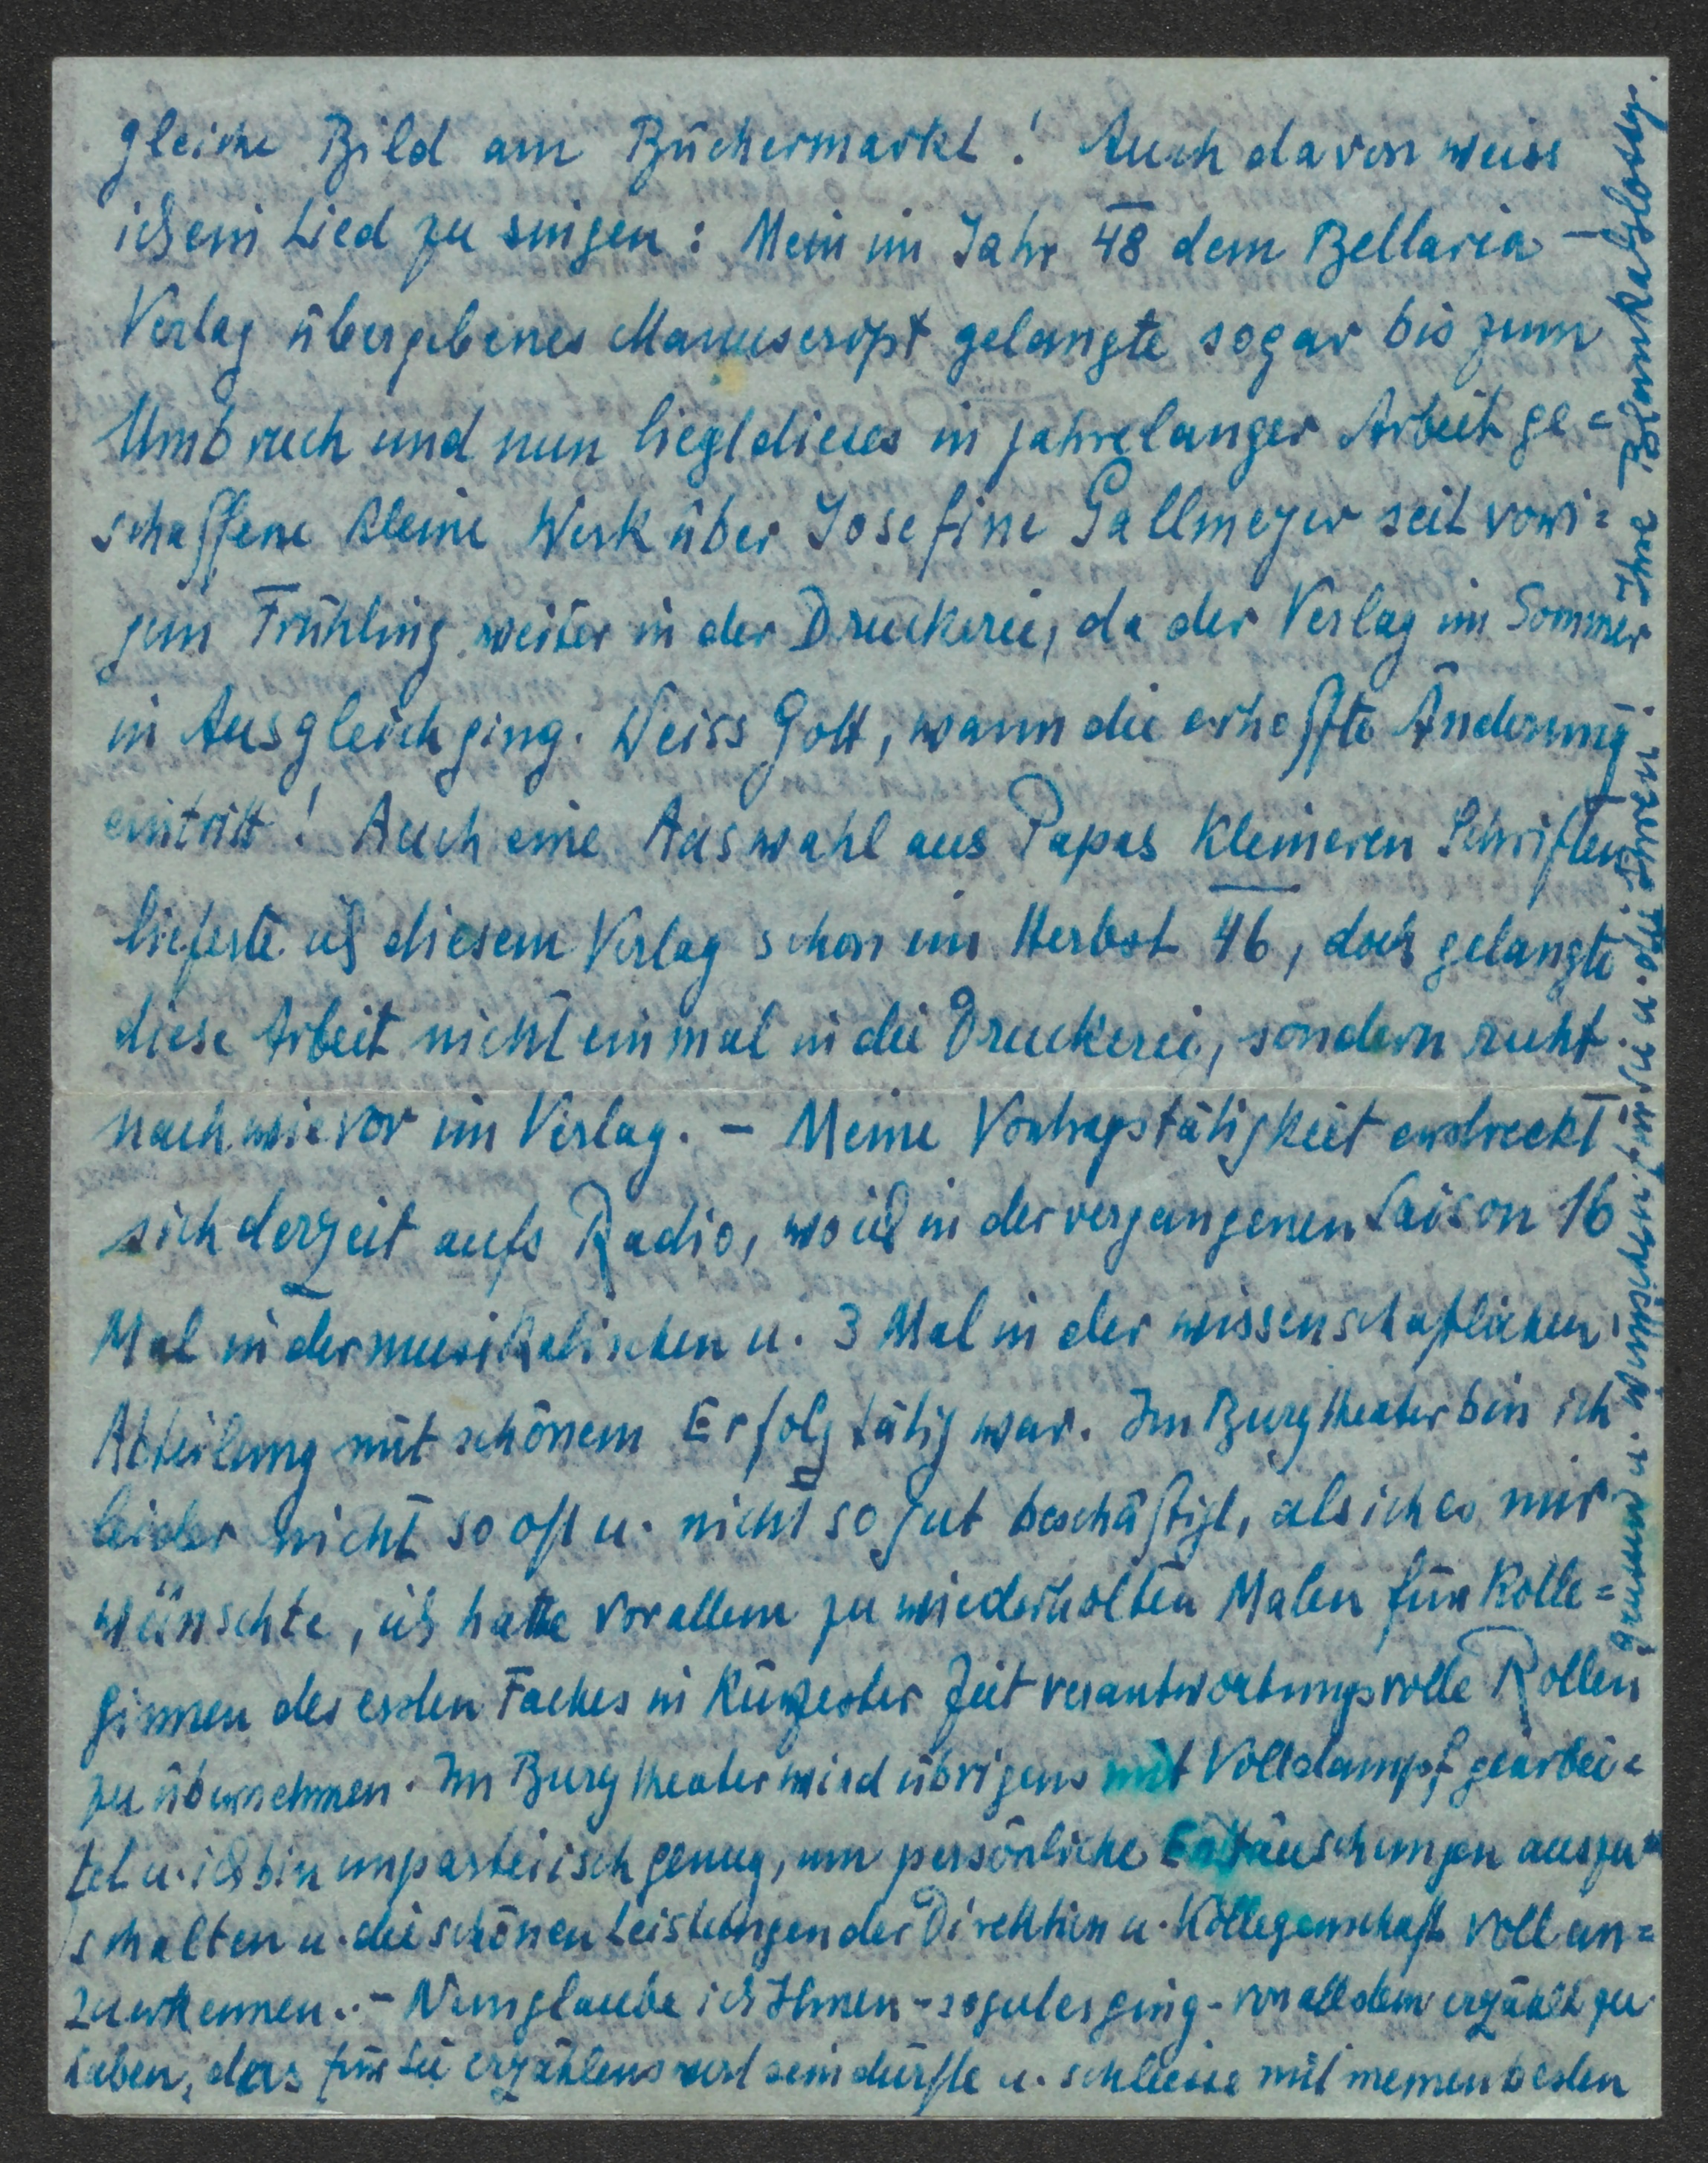 gleiche Bild am Büchermarkt! Auch davon weiss
ich ein Lied zu singen: Mein im Jahr 48 dem Bellaria-
Verlag übergebenes Manuscript gelangte sogar bis zum
Umbruch und nun liegt dieses in jahrelanger Arbeit ge=
schaffene kleine Werk über Josefine Gallmeyer seit vori=
gem Frühling weiter in der Druckerei, da der Verlag im Sommer
in Ausgleich ging. Weiss Gott, wann die erhoffte Änderung
eintritt! Auch eine Auswahl aus Papas kleineren Schriften
lieferte ich diesem Verlag schon im Herbst 46, doch gelangte
diese Arbeit nicht einmal in die Druckerei, sondern ruht
nach wie vor im Verlag. - Meine Vortragstätigkeit erstreckt
sich derzeit aufs Radio, wo ich in der vergangenen Saison 16
Mal in der musikalischen u. 3 Mal in der wissenschaftlichen
Abteilung mit schönem Erfolg tätig war. Im Burgtheater bin ich
leider nicht so oft u. nicht so gut beschäftigt, als ich es mir
wünschte, ich hatte vor allem zu wiederholten Malen für Kolle=
ginnen des ersten Faches in kürzester Zeit verantwortungsvolle Rollen
zu übernehmen. Im Burgtheater wird übrigens mit Volldampf gearbei=
tet u. ich bin unparteiisch genug, um persönliche Enttäuschungen auszu=
schalten u. die schönen Leistungen der Direktion u. Kollegenschaft voll an=
zuerkennen. - Nun glaube ich Ihnen - so gut es ging - von all dem erzählt zu
haben, das für Sie erzählenswert sein dürfte u. schliesse mit meinen besten
Grüssen u. Wünschen! Ihre Blanka Glossy.